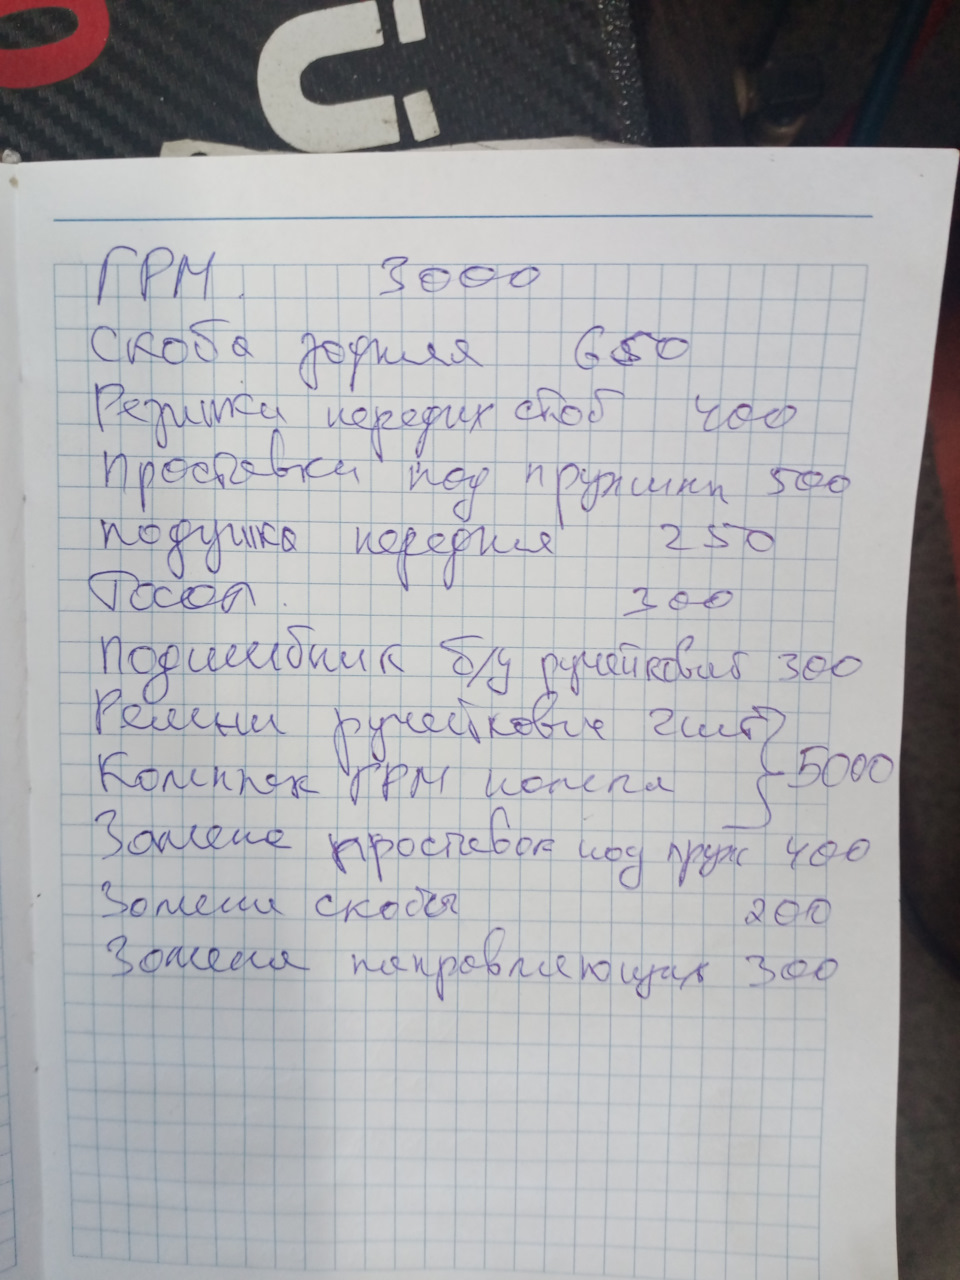 ГРМ. 3000
Скоба задняя 650
Резинки передних скоб 400
Проставки под пружины 500
подушка передняя 250
Тосол. 300
Подшибник б/у ручейковый 300
Ремени ручейковые 2шт
Комплек ГРМ помпа } 5000
Замена проставок под пруж 400
Замена скобы 200
Замена направляющих 300